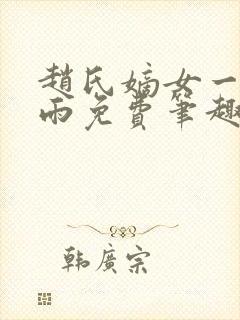 趙氏嫡女一
雨免費筆趣
韓廣宗